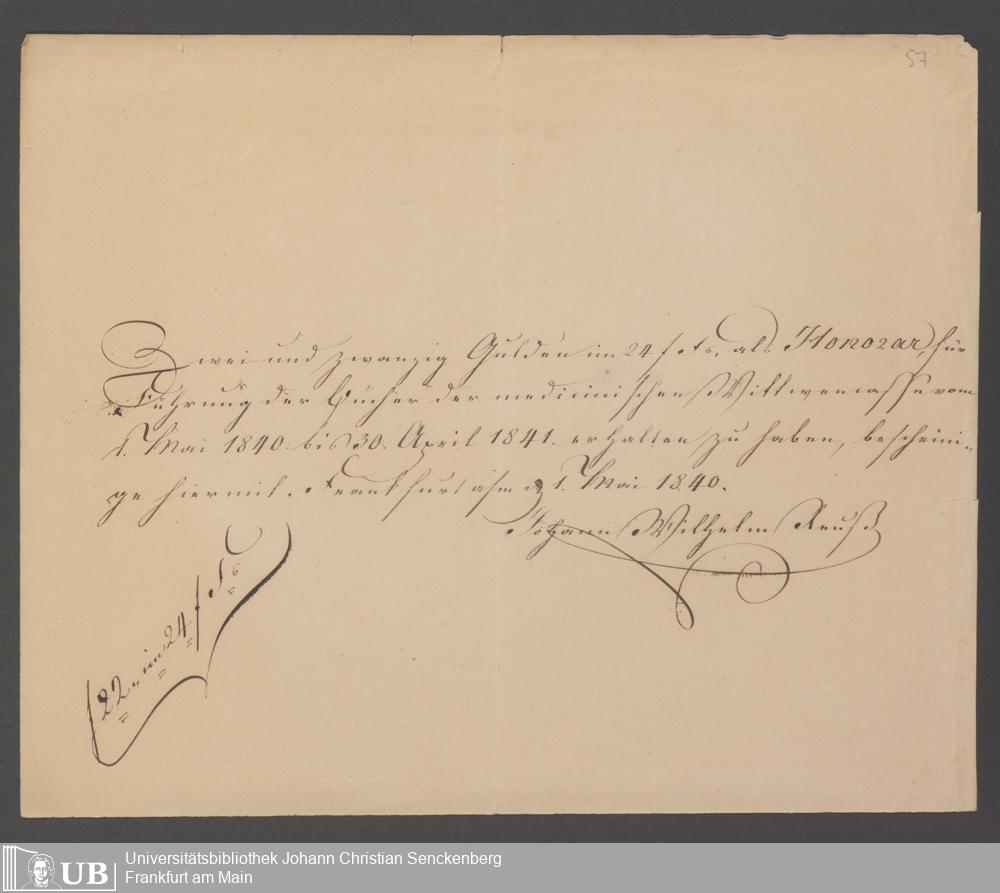 57
Zwei und zwanzig Gulden im 24 f Fs, als Honorar, für
Führung der Bücher der medicinischen Wittwencasse vom
1. Mai 1840. bis 30. April 1841. erhalten zu haben, bescheini-
ge hiermit. Frankfurt a/m d. 1. Mai 1840.
Johann Wilhelm Reuß
f 22 „ im 24 f Fs
UB
Universitätsbibliothek Johann Christian Senckenberg
Frankfurt am Main